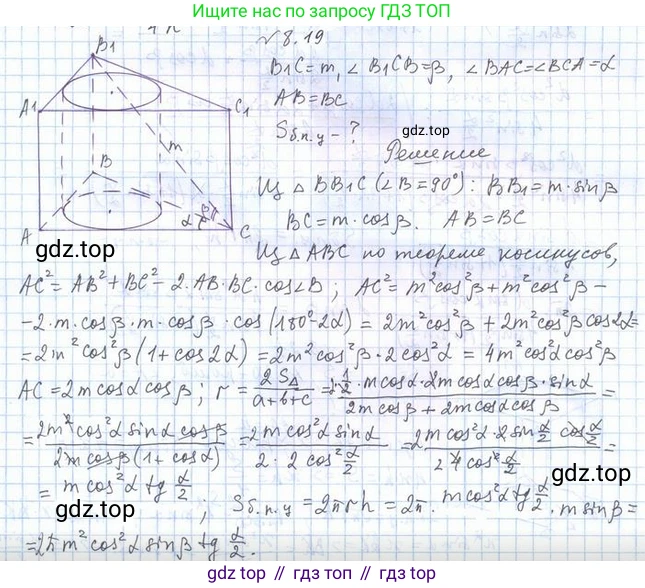 Ищи номер по запросу ГДЗ ТОП
№8.19
B1C=m, ∠B1CB=β, ∠BAC=∠BCA=α
AB=BC
Sб.п.ц - ?
gdz.top
Решение
B1
A1
C1
m
B
α β
A
C
Из △BB1C (∠B=90°): BB1=m·sinβ
BC=m·cosβ. AB=BC
gdz.top
gdz.top
Из △ABC по теореме косинусов,
AC²=AB²+BC²-2·AB·BC·cos∠B; AC²=m²cos²β+m²cos²β-
-2·m·cosβ·m·cosβ·cos(180°-2α)=2m²cos²β+2m²cos²βcos2α=
=2m²cos²β(1+cos2α)=2m²cos²β·2cos²α=4m²cos²αcos²β
AC=2mcosαcosβ; r=2S△/(a+b+c)=2·1/2·mcosα·2mcosαcosβ·sinα/(2mcosβ+2mcosαcosβ)=
=2m²cos²αsinαcosβ/(2mcosβ(1+cosα))=2mcos²αsinα/(2·2cos²α/2)=2mcos²α·2sinα/2cosα/2/(4cos²α/2)=
=mcos²αtgα/2; Sб.п.ц=2πrh=2π·mcos²αtgα/2·msinβ=
gdz.top
gdz.top
=2πm²cos²αsinβtgα/2.
gdz.top // гдз.топ // gdz.top